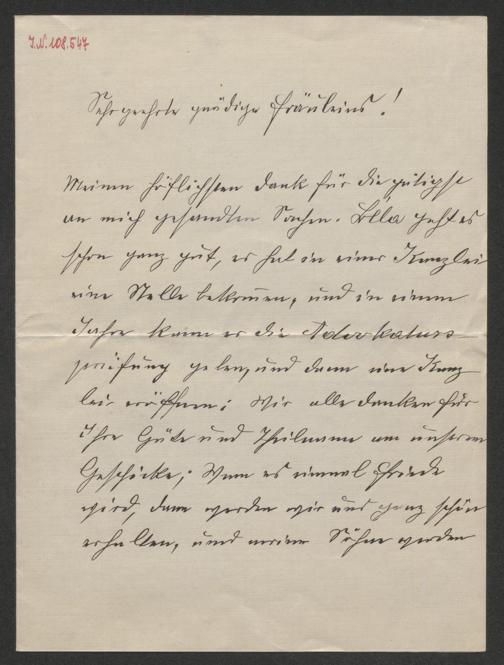 J.N. 108.547
Sehr geehrte gnädige Fräuleins!
Meinen höflichsten Dank für die gütigst
an mich gesandten Sachen. Béla geht es
schon ganz gut, er hat in einer Kanzlei
eine Stelle bekommen, und in einem
Jahre kann er die Advokaturs-
prüfung geben, und dann eine Kanz
lei eröffnen; Wir alle danken für
Ihre Güte und Theilname am unserem
Geschicke; Wenn es einmal Friede
wird, dann werden wir uns ganz schön
erhalten, und meine Söhne werden